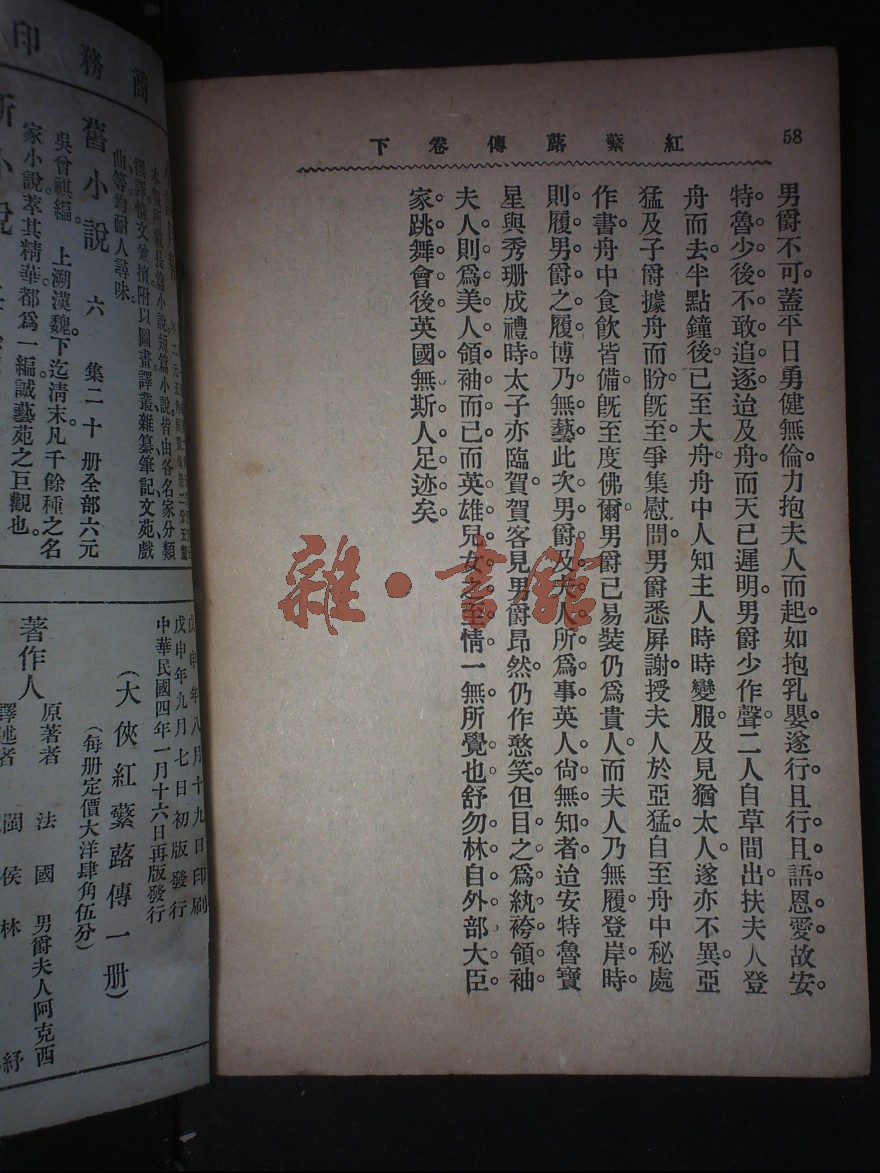 58
紅蘩蕗傳卷下
男爵不可。蓋平日勇健無倫。力抱夫人而起。如抱乳嬰。遂行且行且語恩愛。故安
特魯少後不敢追逐。迨及舟。而天已遲明。男爵少作聲。二人自草間出。扶夫人登
舟而去。半點鐘後。已至大舟。舟中人知主人時時變服。及見猶太人。遂亦不異。亞
猛及子爵據舟而盼。旣至。爭集慰問。男爵悉屏謝。授夫人於亞猛。自至舟中秘處
作書。舟中食飲皆備。旣至度佛爾。男爵已易裝。仍爲貴人。而夫人乃無履。登岸時。
則履男爵之履。博乃無藝。此次男爵及夫人所爲事。英人尙無知者。迨安特魯寶
星與秀珊成禮時。太子亦臨賀。賀客見男爵昂然。仍作憨笑。但目之爲紈袴領袖。
夫人則爲美人領袖而已。而英雄兒女之至情。一無所覺也。舒勿林自外部大臣
家跳舞會後。英國無斯人足迹矣。
雜·書館
商務印
舊小說 六集二十册全部六元
吳曾祺編。上溯漢魏。下迄淸末。凡千餘種之名
家小說。萃其精華。都爲一編。誠藝苑之巨觀也。
本報所載長篇小說。短篇小說。皆由各名家分類
譔譯。情文兼擅。附以圖畫譯叢雜纂筆記文苑戲
曲等。均耐人尋味。
戊申年八月十九日印刷
戊申年九月七日初版發行
中華民國四年一月十六日再版發行
(大俠紅蘩蕗傳一册)
(每册定價大洋肆角伍分)
著作人
原著者 法國男爵夫人阿克西
譯述者 閩侯林紓